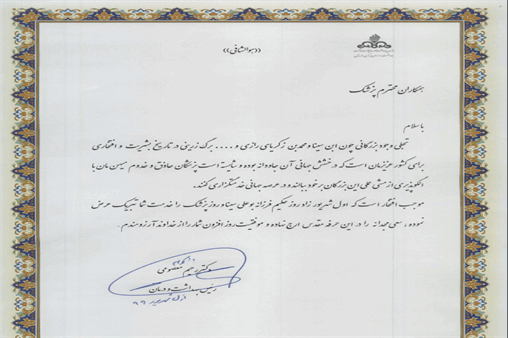 ((هوالشافی))
همکاران محترم پزشک
با سلام
تجلی وجود بزرگانی چون ابن سینا و محمد بن زکریای رازی و .... برگ زرینی در تاریخ بشریت و افتخاری
برای کشور عزیزمان است که درخشش جهانی آن جاودانه بوده و شایسته است پزشکان حاذق و خدوم میهن مان با
الگوپذیری از مشی علمی این بزرگان بر خود ببالند و در عرصه جهانی خدمتگزاری کنند.
موجب افتخار است که اول شهریور زاد روز حکیم فرزانه بوعلی سینا و روز پزشک را خدمت شما تبریک عرض
نموده ، سعی مجدانه را در این حرفه مقدس ارج نهاده و موفقیت روز افزون شما را از خداوند آرزومندم.
دکتر رحیم معصومی
رئیس بهداشت و درمان